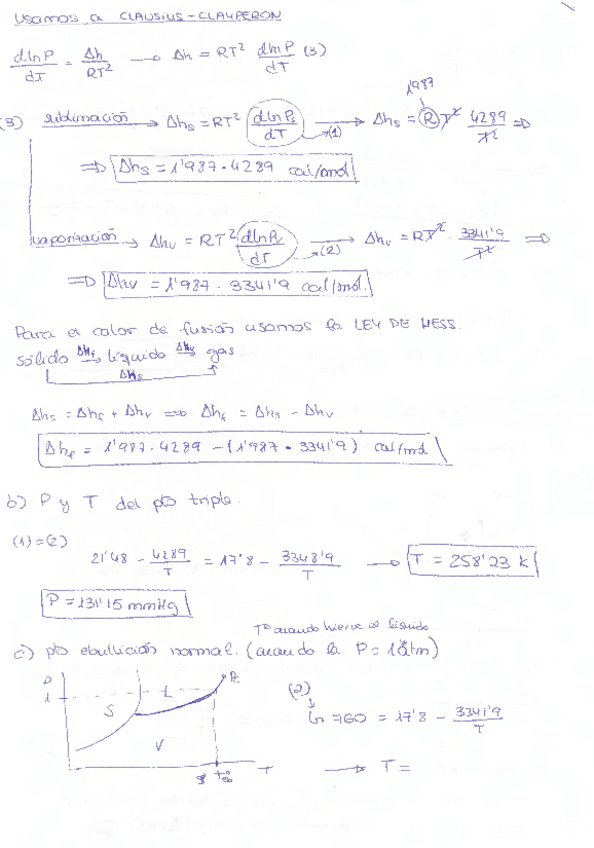 usamos a CLAUSIUS-CLAYPERON
dlnP/dT = Δh/RT² → Δh = RT² dlnP/dT (3)
(3) sublimación → Δhs = RT² dlnPs/dT →(1) Δhs = R T² 4289/T² ⇒
1987
⇒ Δhs = 1'987·4289 cal/mol
vaporización → Δhv = RT² dlnP/dT →(2) Δhv = RT² · 3341'9/T² ⇒
⇒ Δhv = 1'987 · 3341'9 cal/mol.
Para el calor de fusión usamos la LEY DE HESS.
sólido ΔHf→ líquido ΔHv→ gas
ΔHs
Δhs = Δhf + Δhv ⇒ Δhf = Δhs - Δhv
Δhf = 1'987·4289 - (1'987 · 3341'9) cal/mol
b) P y T del pto triple.
(1)=(2)
21'48 - 4289/T = 17'8 - 3348'9/T → T = 258'23 K
P = 131'15 mmHg
Tª cuando hierve el líquido
c) pto ebullición normal. (cuando la P = 1 atm)
P
1
S
L
V
T
(2)
ln 760 = 17'8 - 3341'9/T
→ T =